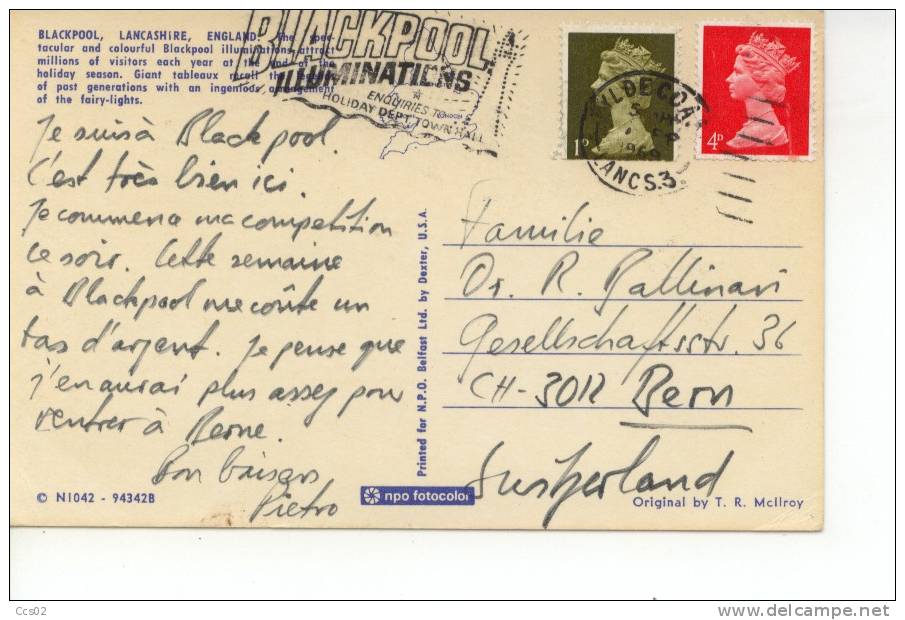 BLACKPOOL, LANCASHIRE, ENGLAND. The spec-
tacular and colourful Blackpool illuminations attract
millions of visitors each year at the end of the
holiday season. Giant tableaux recall the
of past generations with an ingenious
of the fairy-lights.
BLACKPOOL
ILLUMINATIONS
ENQUIRIES TO
HOLIDAY DEPT. TOWN HALL
1D
LANCS. 3
4D
Je suis à Blackpool.
C'est très bien ici.
Je commence ma competition
ce soir. Cette semaine
à Blackpool me coûte un
tas d'argent. Je pense que
j'en aurai plus assez pour
rentrer à Berne.
Bon baisers
Pietro
© N1042 - 94342B
Printed for N.P.O. Belfast Ltd. by Dexter, U.S.A.
npo fotocolor
Familie
Dr. R. Ballinari
Gesellschaftsstr. 36
CH-3012 Bern
Switzerland
Original by T. R. McIlroy
Ccs02
delcampe.net